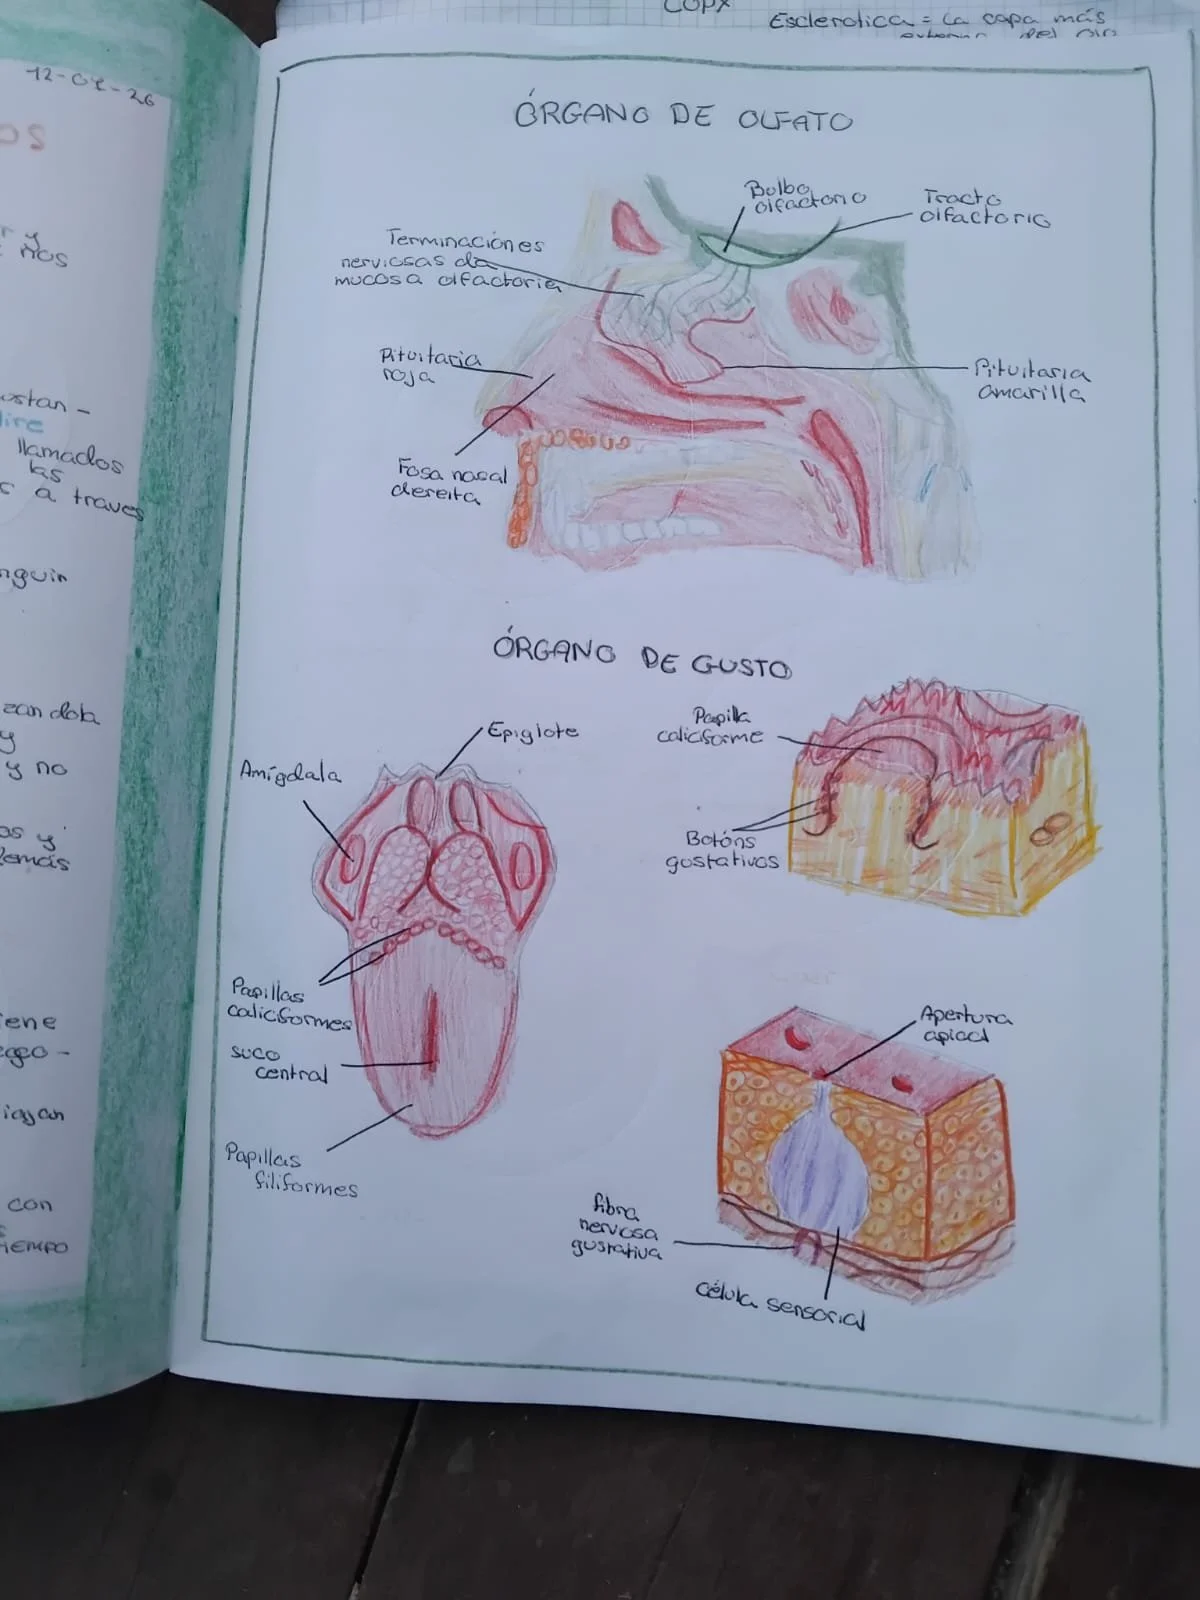 COPX
Esclerotica = La capa más
del ojo
12-01-26
OS
r y
nos
ustan -
ire
llamados
las
s a traves
nguin
zan dola
y
y no
os y
demás
iene
ego -
iayan
con
TIEMPO
ÓRGANO DE OLFATO
Bulbo
olfactorio
Tracto
olfactorio
Terminaciones
nerviosas da
mucosa olfactoria
Pituitaria
roja
Pituitaria
amarilla
Fosa nasal
dereita
ÓRGANO DE GUSTO
Epiglote
Amígdala
Papilla
caliciforme
Botóns
gostativos
Papillas
caliciformes
suco
central
Papillas
filiformes
Apertura
apical
fibra
nerviosa
gustativa
célula sensorial